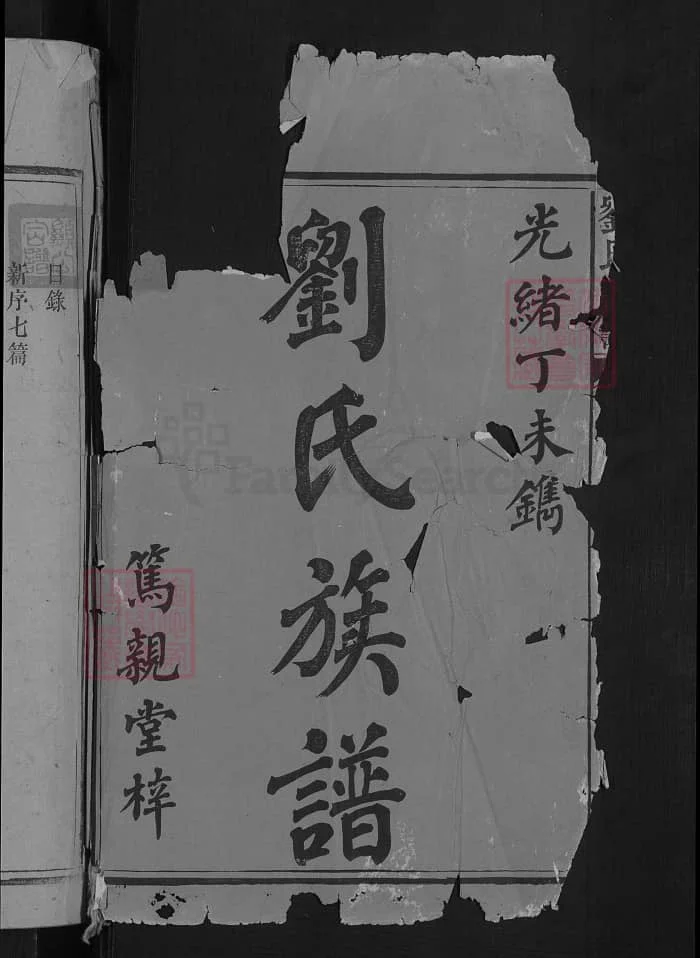 光緒丁未鐫
劉氏族譜
篤親堂梓
目錄
新序七篇
FamilySearch